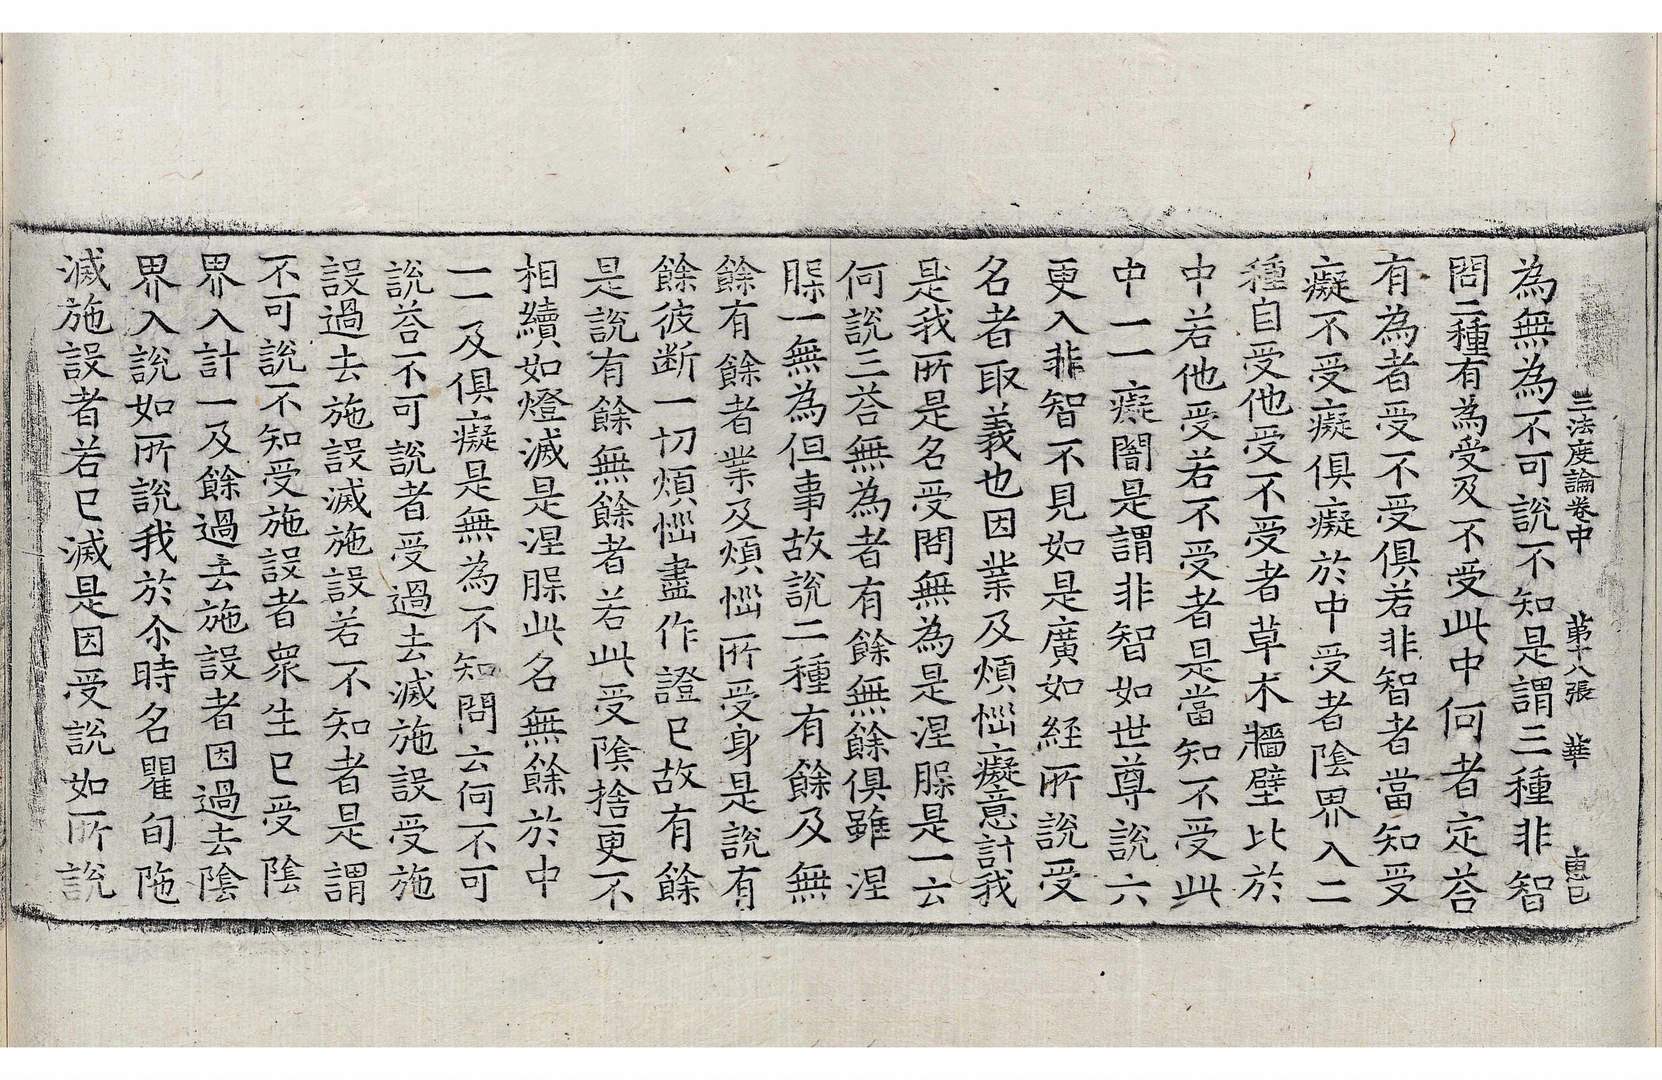 三法度論卷中 第十八張 華 惠巳
為無為不可說不知是謂三種非智
問二種有為受及不受此中何者定荅
有為者受不受俱若非智者當知受
癡不受癡俱癡於中受者陰界入二
種自受他受不受者草木牆壁比於
中若他受若不受者是當知不受此
中一一癡闇是謂非智如世尊說六
更入非智不見如是廣如經所說受
名者取義也因業及煩惱癡意計我
是我所是名受問無為是涅槃是一云
何說三荅無為者有餘無餘俱雖涅
槃一無為但事故說二種有餘及無
餘有餘者業及煩惱所受身是說有
餘彼斷一切煩惱盡作證已故有餘
是說有餘無餘者若此受陰捨更不
相續如燈滅是涅槃此名無餘於中
一一及俱癡是無為不知問云何不可
說荅不可說者受過去滅施設受施
設過去施設滅施設若不知者是謂
不可說不知受施設者眾生已受陰
界入計一及餘過去施設者因過去陰
界入說如所說我於尒時名瞿旬陁
滅施設者若已滅是因受說如所說